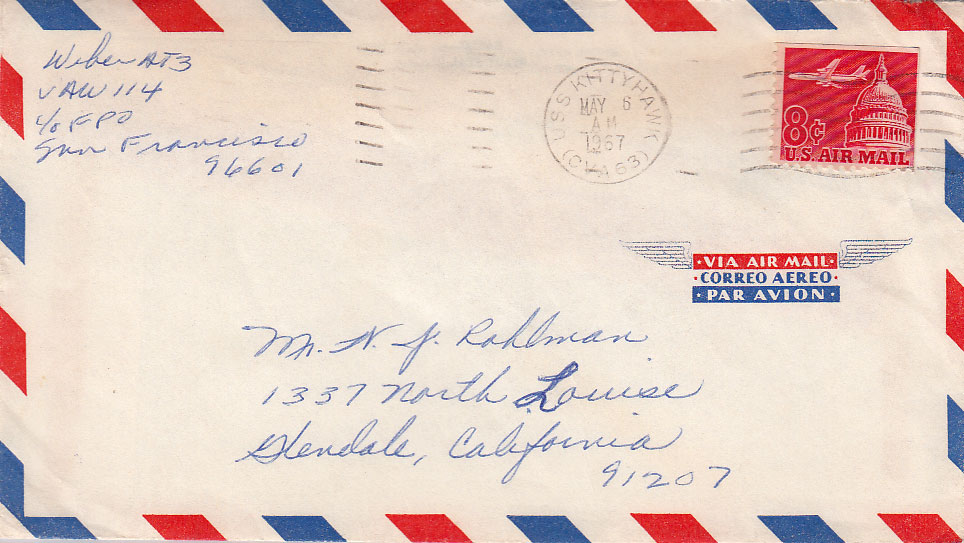 Weber AT3
VAW 114
c/o FPO
San Francisco
96601
U.S.S. KITTYHAWK
MAY 6
AM
1967
(CVA63)
8¢
U.S. AIR MAIL
·VIA AIR MAIL·
·CORREO AEREO·
·PAR AVION·
Mr. N. J. Rohlman
1337 North Louise
Glendale, California
91207